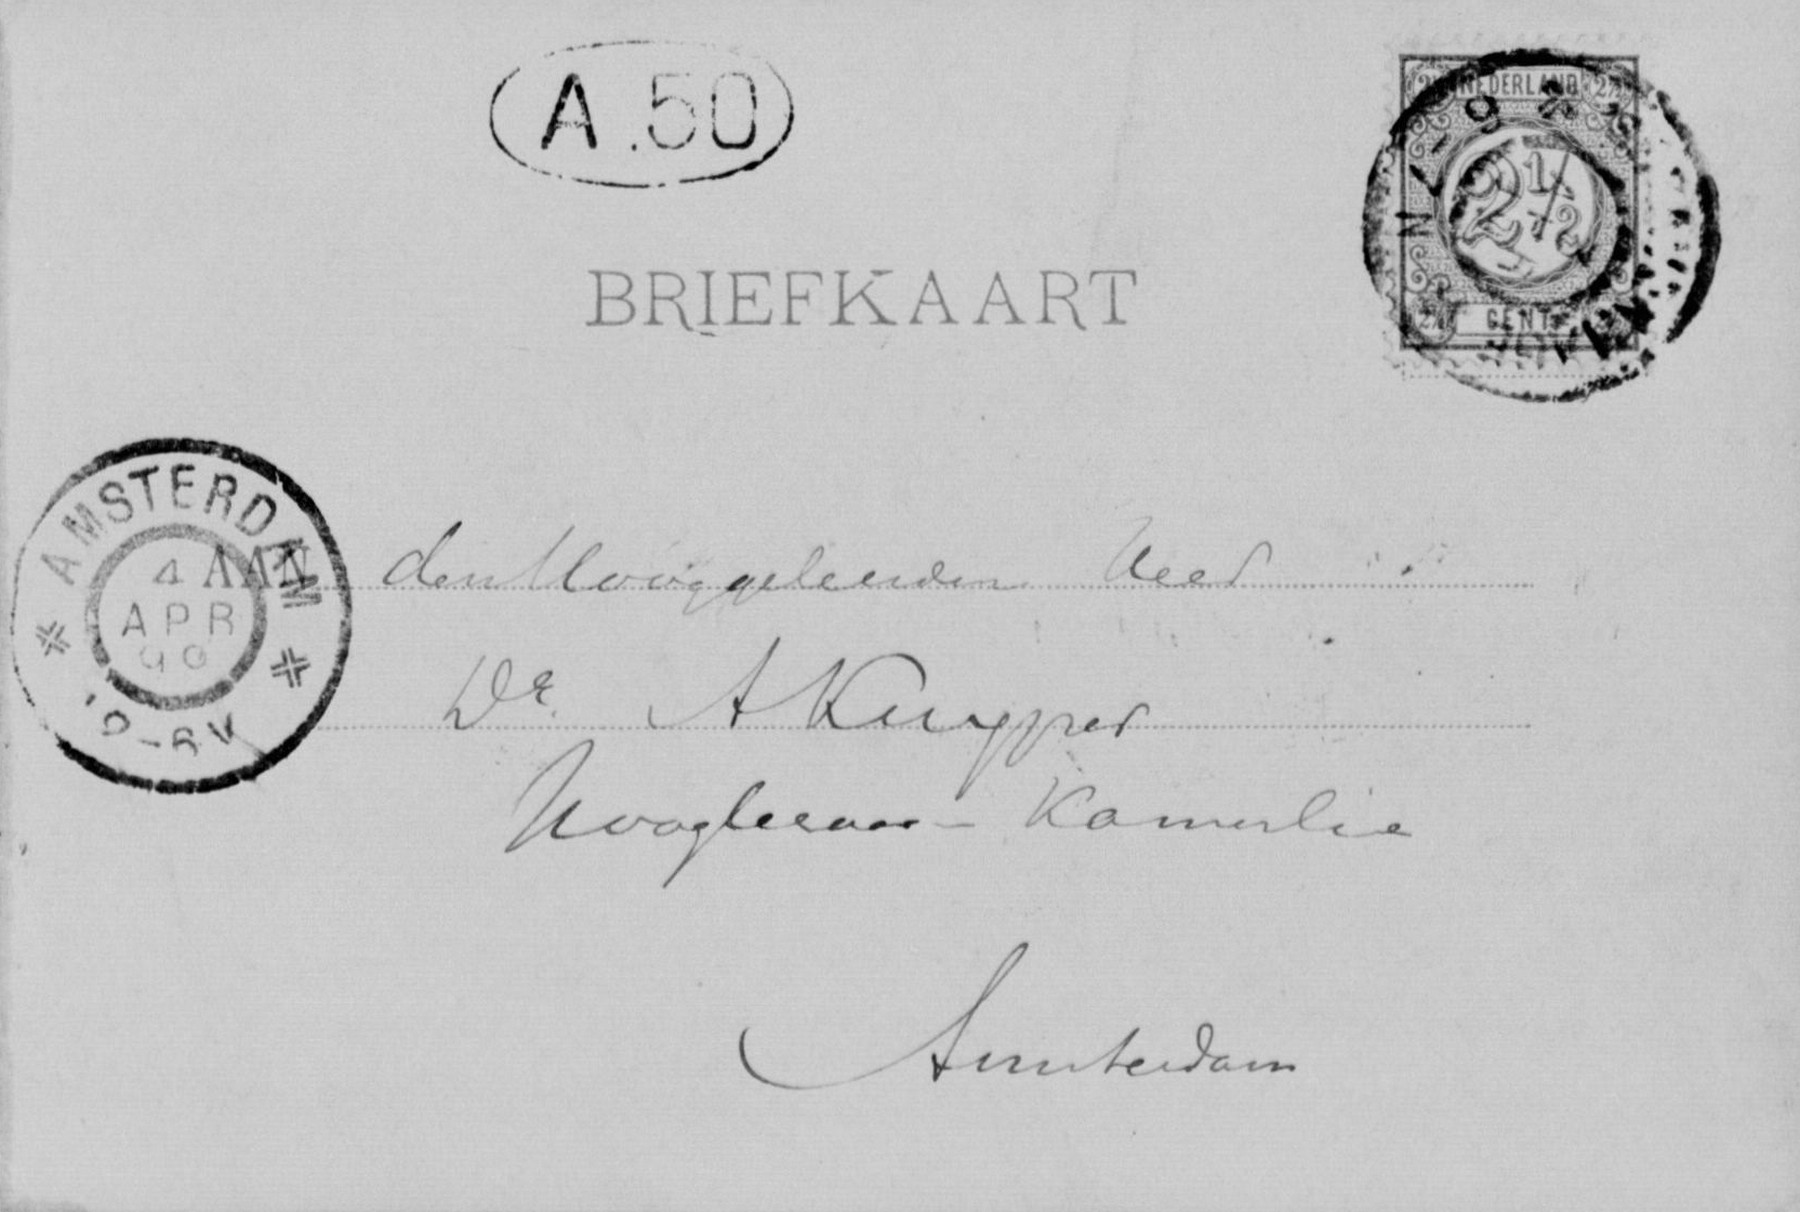 A.50
NEDERLAND
2½
CENT
BRIEFKAART
AMSTERDAM
4
APR
90
AAN den Hooggeleerden Heer
Dr. A Kuyper
Hoogleeraar - Kamerlid
Amsterdam